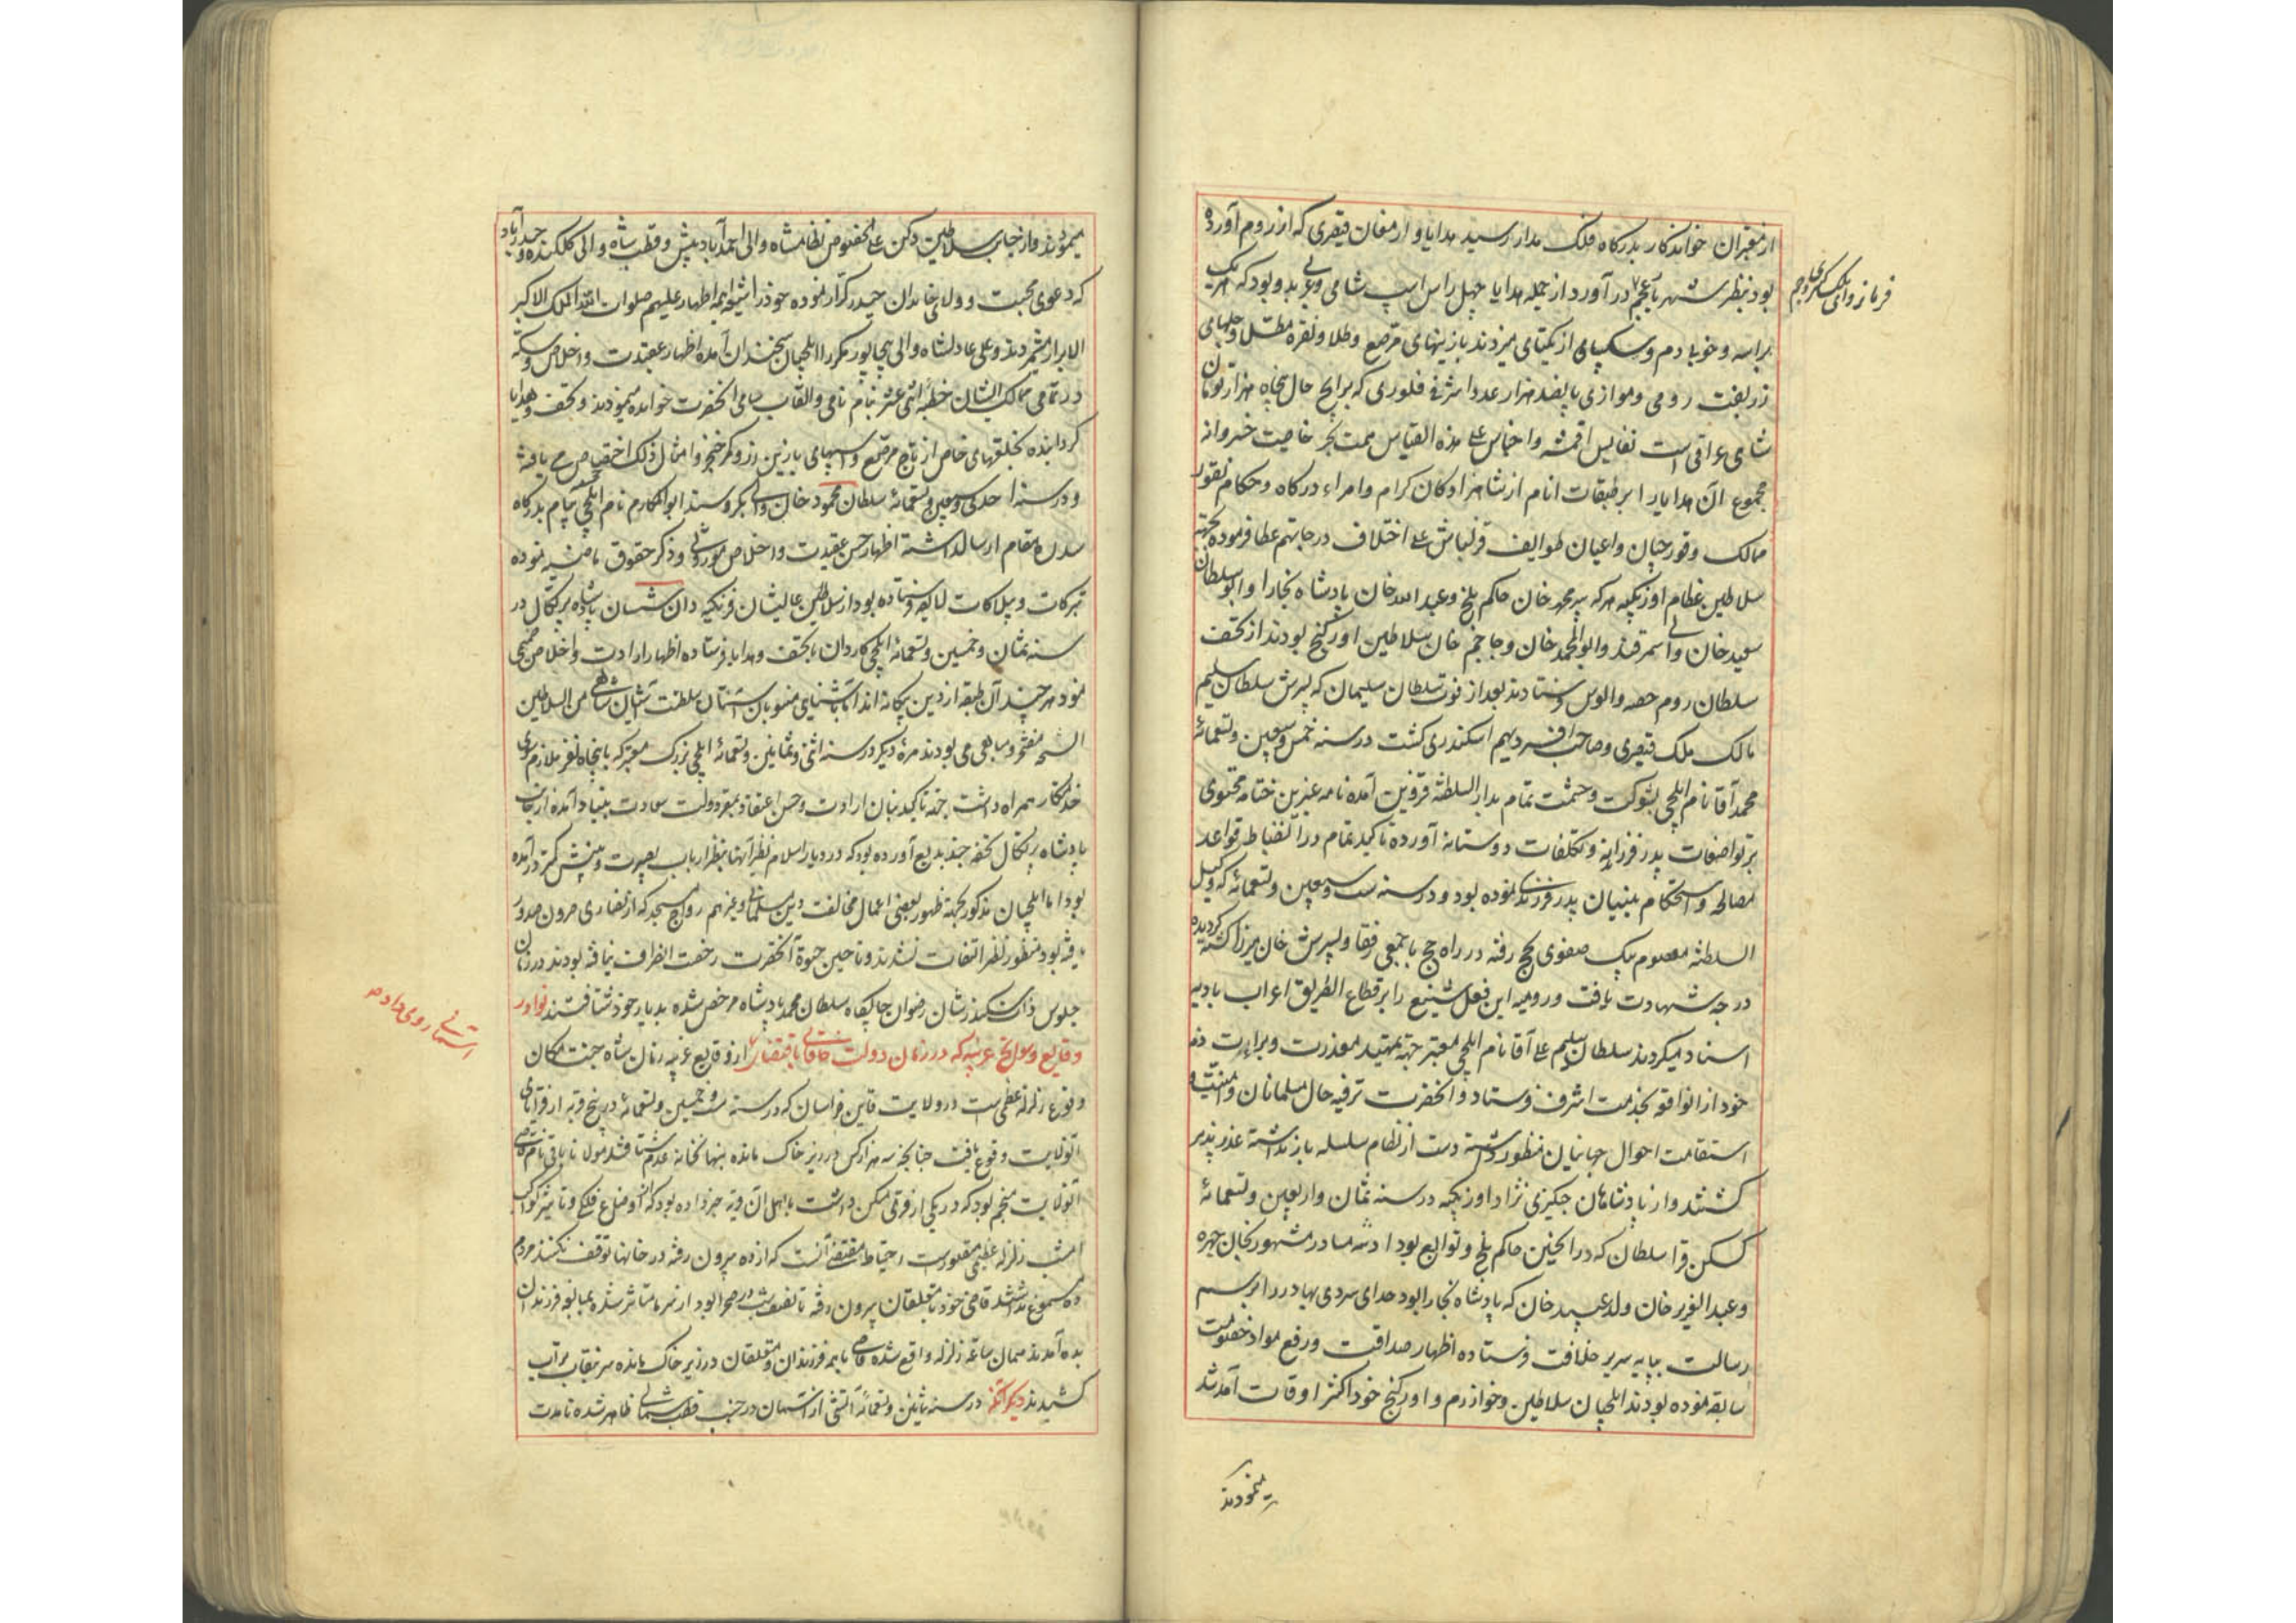 از معتبران خواندکار بدرکاه فلک مدار رسید هدایا و ارمغان قیصری که از روم آورده
بود بنظر شهریار عجم در آورد از جمله هدایا چهل راس اسپ شامی و عربی و بدو بود که هر یک
فرمانروای ملک کی و جم
براسه و خوبا دم و سکپای از یکتای میزدند با زینهای مرصع و طلا و نقره مطلا و جلهای
زربفت رومی و موازی پانصد هزار عدد اشرفی فلوری که برایج حال پنجاه هزار تومان
شاهی عراقی است نفایس اقمشه و اجناس علی هذه القیاس همت بحر خاصیت خسروانه
مجموع آن هدایا را بر طبقات انام از شاهزادکان کرام و امراء درکاه و حکام ثغور
ممالک و قورچیان و اعیان طوایف قزلباش علی اختلاف درجاتهم عطا فرموده بجهة
سلاطین عظام اوزبکیه مرکه پیر محمد خان حاکم بلخ و عبدالله خان پادشاه بخارا و ابو سلطان
سعید خان والی سمرقند و ابوالمحمد خان و حاجم خان سلاطین اورکنج بودند از تحف
سلطان روم حصه و الوس فرستادند بعد از فوت سلطان سلیمان که پسرش سلطان سلیم
مالک ملک قیصری و صاحب افسر دیهیم اسکندری کشت در سنه خمس و سبعین و تسعمائه
محمد آقا نام ایلچی بشوکت و حشمت تمام بدارالسلطنه قزوین آمده نامه عنبرین ختامه محتوی
بر تواضعات پدر فرزندانه و تکلفات دوستانه آورده تاکید تمام در انضباط قواعد
مصالحه و استحکام بنیان پدر فرزندی نموده بود و در سنه ست و سبعین و تسعمائه که وکیل
السلطنه معصوم بیک صفوی بحج رفته در راه حج با جمعی رفقا و پسرش خان میرزا کشته کردیده
درجه شهادت یافت و رومیه این فعل شنیع را بر قطاع الطریق اعراب بادیه
اسناد میکردند سلطان سلیم علی آقا نام ایلچی معتبر جهة تمهید معذرت و براءت ذمه
خود از انواقعه بخدمت اشرف فرستاد و انحضرت ترفیه حال مسلمانان و امنیت و
استقامت احوال جهانیان منظور داشته دست از نظام سلسله باز نداشته عذرپذیر
کشتند و از پادشاهان چنکیزی نژاد اوزبکیه در سنه ثمان و اربعین و تسعمائه
کسکن قرا سلطان که در انحین حاکم بلخ و توابع بود ادشه مهادر مشهور بخان چهره
و عبدالعزیز خان ولد عبید خان که پادشاه بخارا بود خدای بردی بهادر را برسم
رسالت بپایه سریر خلافت فرستاده اظهار صداقت و رفع مواد خصومت
سابقه نموده بودند ایلچیان سلاطین و خوارزم و اورکنج خود اکثر اوقات آمد شد
مینمودند
مینمودند و از جانب سلاطین دکن علی الخصوص نظامشاه والی احمد آباد پیش و قطب شاه والی کلکنده و حیدرآباد
که دعوی محبت و ولای خاندان حیدر کرار نموده خود را شیعه ایمه اطهار علیهم صلوات الله الملک الاکبر
الابرار میشمردند و علی عادلشاه والی بیجاپور مکررا ایلچیان سخندان آمده اظهار عقیدت و اخلاص و سکه
در تمامی ممالک ایشان خطبه اثنی عشر بنام نامی و القاب سامی انحضرت خوانده مینمودند و تحف و هدایا
کردانیده بخلعتهای خاص از تاج مرصع و اسپهای با زین زر و کمر خنجر و امثال ذلک اختصاص می یافته
و در سنه احدی و سبعین و تسعمائه سلطان محمود خان والی بکر و سند ابوالمکارم نام ایلچی پیام بدرکاه
سدره مقام ارسال داشته اظهار حسن عقیدت و اخلاص موروثی و ذکر حقوق ماضیه نموده
تبرکات و بیلاکات لایقه فرستاده بود از سلاطین عالیشان فرنکیه دان شبستیان پادشاه پرتکال در
سنه ثمان و خمسین و تسعمائه ایلچی کاردان با تحف و هدایا فرستاده اظهار ارادت و اخلاص صمیمی
نمود هر چند آن طبقه از دین بیکانه اند اما باشنایی منسوبان آستان سلطنت آشیان شاهی من السلاطین
الشحه مفتخر و مباهی می بودند مرة دیکر در سنه اثنی و ثمانین و تسعمائه ایلچی بزرک معتبر که با پنجاه نفر ملازم سوای
خدمتکار همراه داشت جهة تاکید بنیان ارادت و حسن اعتقاد بمقر دولت سعادت بنیاد آمده از جانب
پادشاه پرتکال تحفه چند بدیع آورده بود که در دیار اسلام نظیر آنها بنظر ارباب بصیرت و بینش کمتر در آمده
بود اما ایلچیان مذکور بجهة ظهور بعضی اعمال مخالفت دین مسلمانی و غیر هم رواج مسجد که از نصاری هرمون صدور
یافته بود منظور نظر التفات نشدند و تا حین حیوة آنحضرت رخصت انصراف نیافته بودند در زمان
جلوس ذات سکندر شان رضوان جایکاه سلطان محمد پادشاه مرخص شده بدیار خود شتافتند نوادر
وقایع و سوانح غریبه که در زمان دولت خاقانی باقتضای از وقایع غریبه زمان شاه جنت مکان
آسمانی روی داده
وقوع زلزله عظیمی است در ولایت قاین خراسان که در سنه ست و خمسین و تسعمائه در پنج قریه از قرای
آنولایت وقوع یافت چنانچه سه هزار کس در زیر خاک مانده بنهانخانه عدم شتافتند مولانا باقی نام قاضی
آنولایت منجم بود که در یکی از قری مسکن داشت با اهل آن قریه خبر داده بود که از اوضاع فلکی و تاثیر کواکب
امشب زلزله عظیمی مقصود است احتیاط مقتضی آنست که از ده بیرون رفته در خانها توقف نکنند مردم
ده مسموع نداشتند قاضی خود با متعلقان بیرون رفته تا نصف شب در صحرا بود از سرما متاثر شده بمبالغه فرزندان
بده آمدند همان ساعة زلزله واقع شده قاضی با همه فرزندان و متعلقان در زیر خاک مانده سر نقاب تراب
کشیدند دیکر آنکه در سنه ثمانین و تسعمائه آتشی از آسمان در جنب قطب شمالی ظاهر شده تا مدت